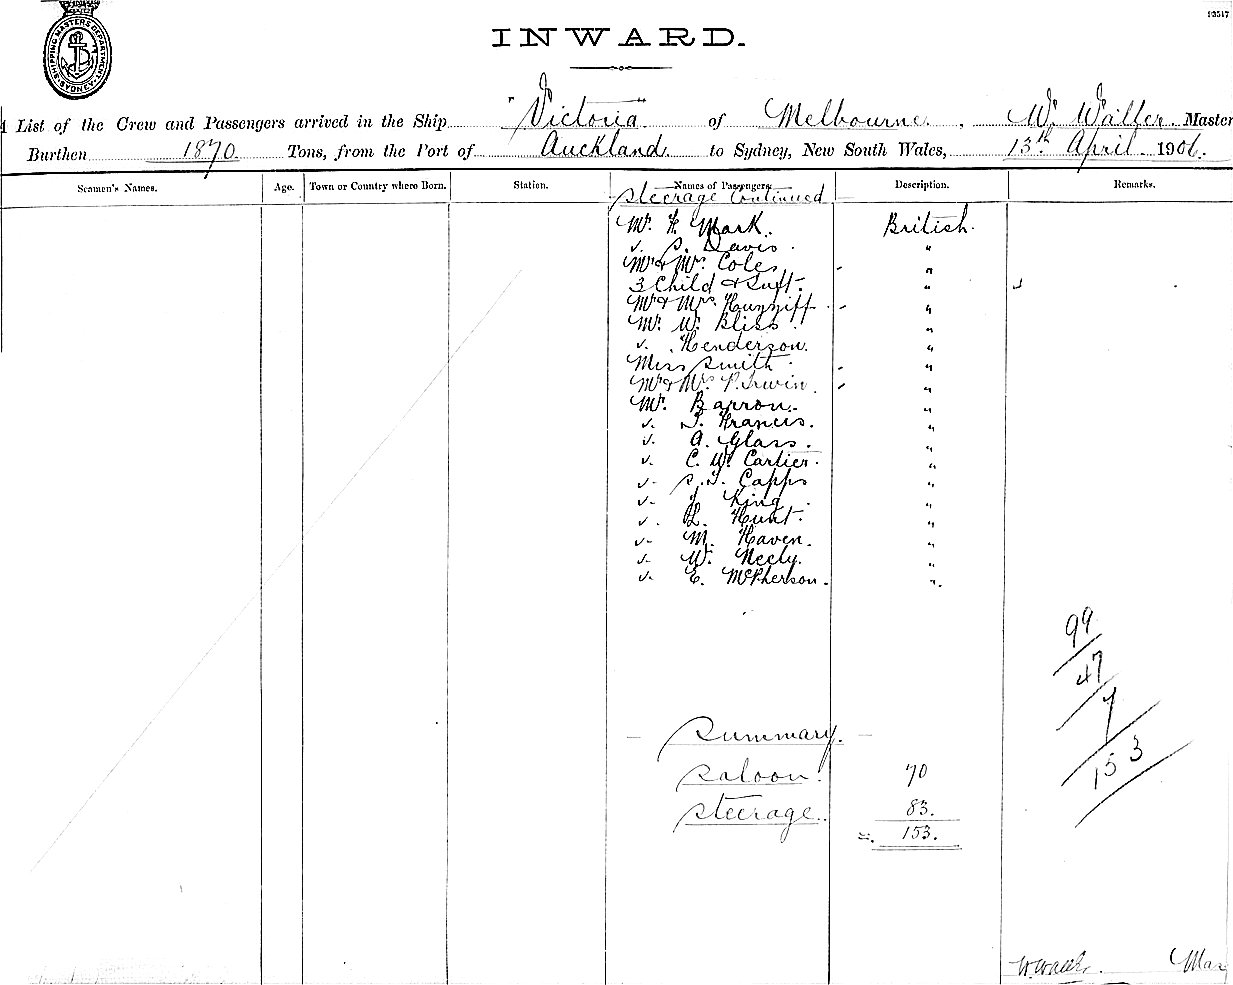 93517
SHIPPING MASTERS DEPARTMENT SYDNEY
INWARD.
List of the Crew and Passengers arrived in the Ship "Victoria" of Melbourne, W. Waller Master
Burthen 1870 Tons, from the Port of Auckland to Sydney, New South Wales, 13th April 1906.
Seamen's Names. Age. Town or Country where Born. Station. Names of Passengers Description. Remarks.
Steerage Continued
Mr. F. Mark. British.
" S. Davis. "
Mr & Mrs. Coles "
3 Child & Inft. "
Mr & Mrs. "
Mr. W. Bliss. "
" Henderson. "
Miss Smith "
Mr & Mrs P. Irwin. "
Mr. Barron. "
" T. Francis. "
" A. Glass. "
" C. W. Cartier. "
" S. T. Capps "
" J. King "
" L. Hunt. "
" M. Haven. "
" W. Neely. "
" E. McPherson. "
99
47
7
153
Summary.
Saloon. 70
Steerage. 83.
= 153.